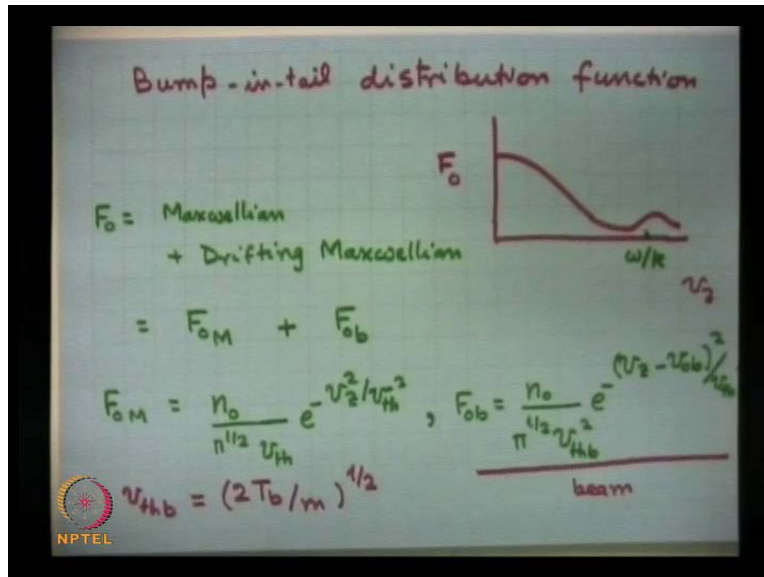 Bump-in-tail distribution function
F₀
ω/k
v_z
F₀ = Maxwellian
+ Drifting Maxwellian
= F₀M + F₀b
F₀M = n₀ / (π^{1/2} v_th) e^{-v_z²/v_th²} , F₀b = n₀ / (π^{1/2} v_thb²) e^{-(v_z - v₀b)²/v_thb}
beam
v_thb = (2T_b/m)^{1/2}
NPTEL